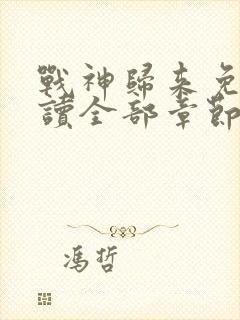 戰神歸來免
讀全部章節
馮哲